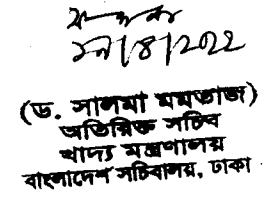 ১৭/৪/2022
(ড. সালমা মমতাজ)
অতিরিক্ত সচিব
খাদ্য মন্ত্রণালয়
বাংলাদেশ সচিবালয়, ঢাকা